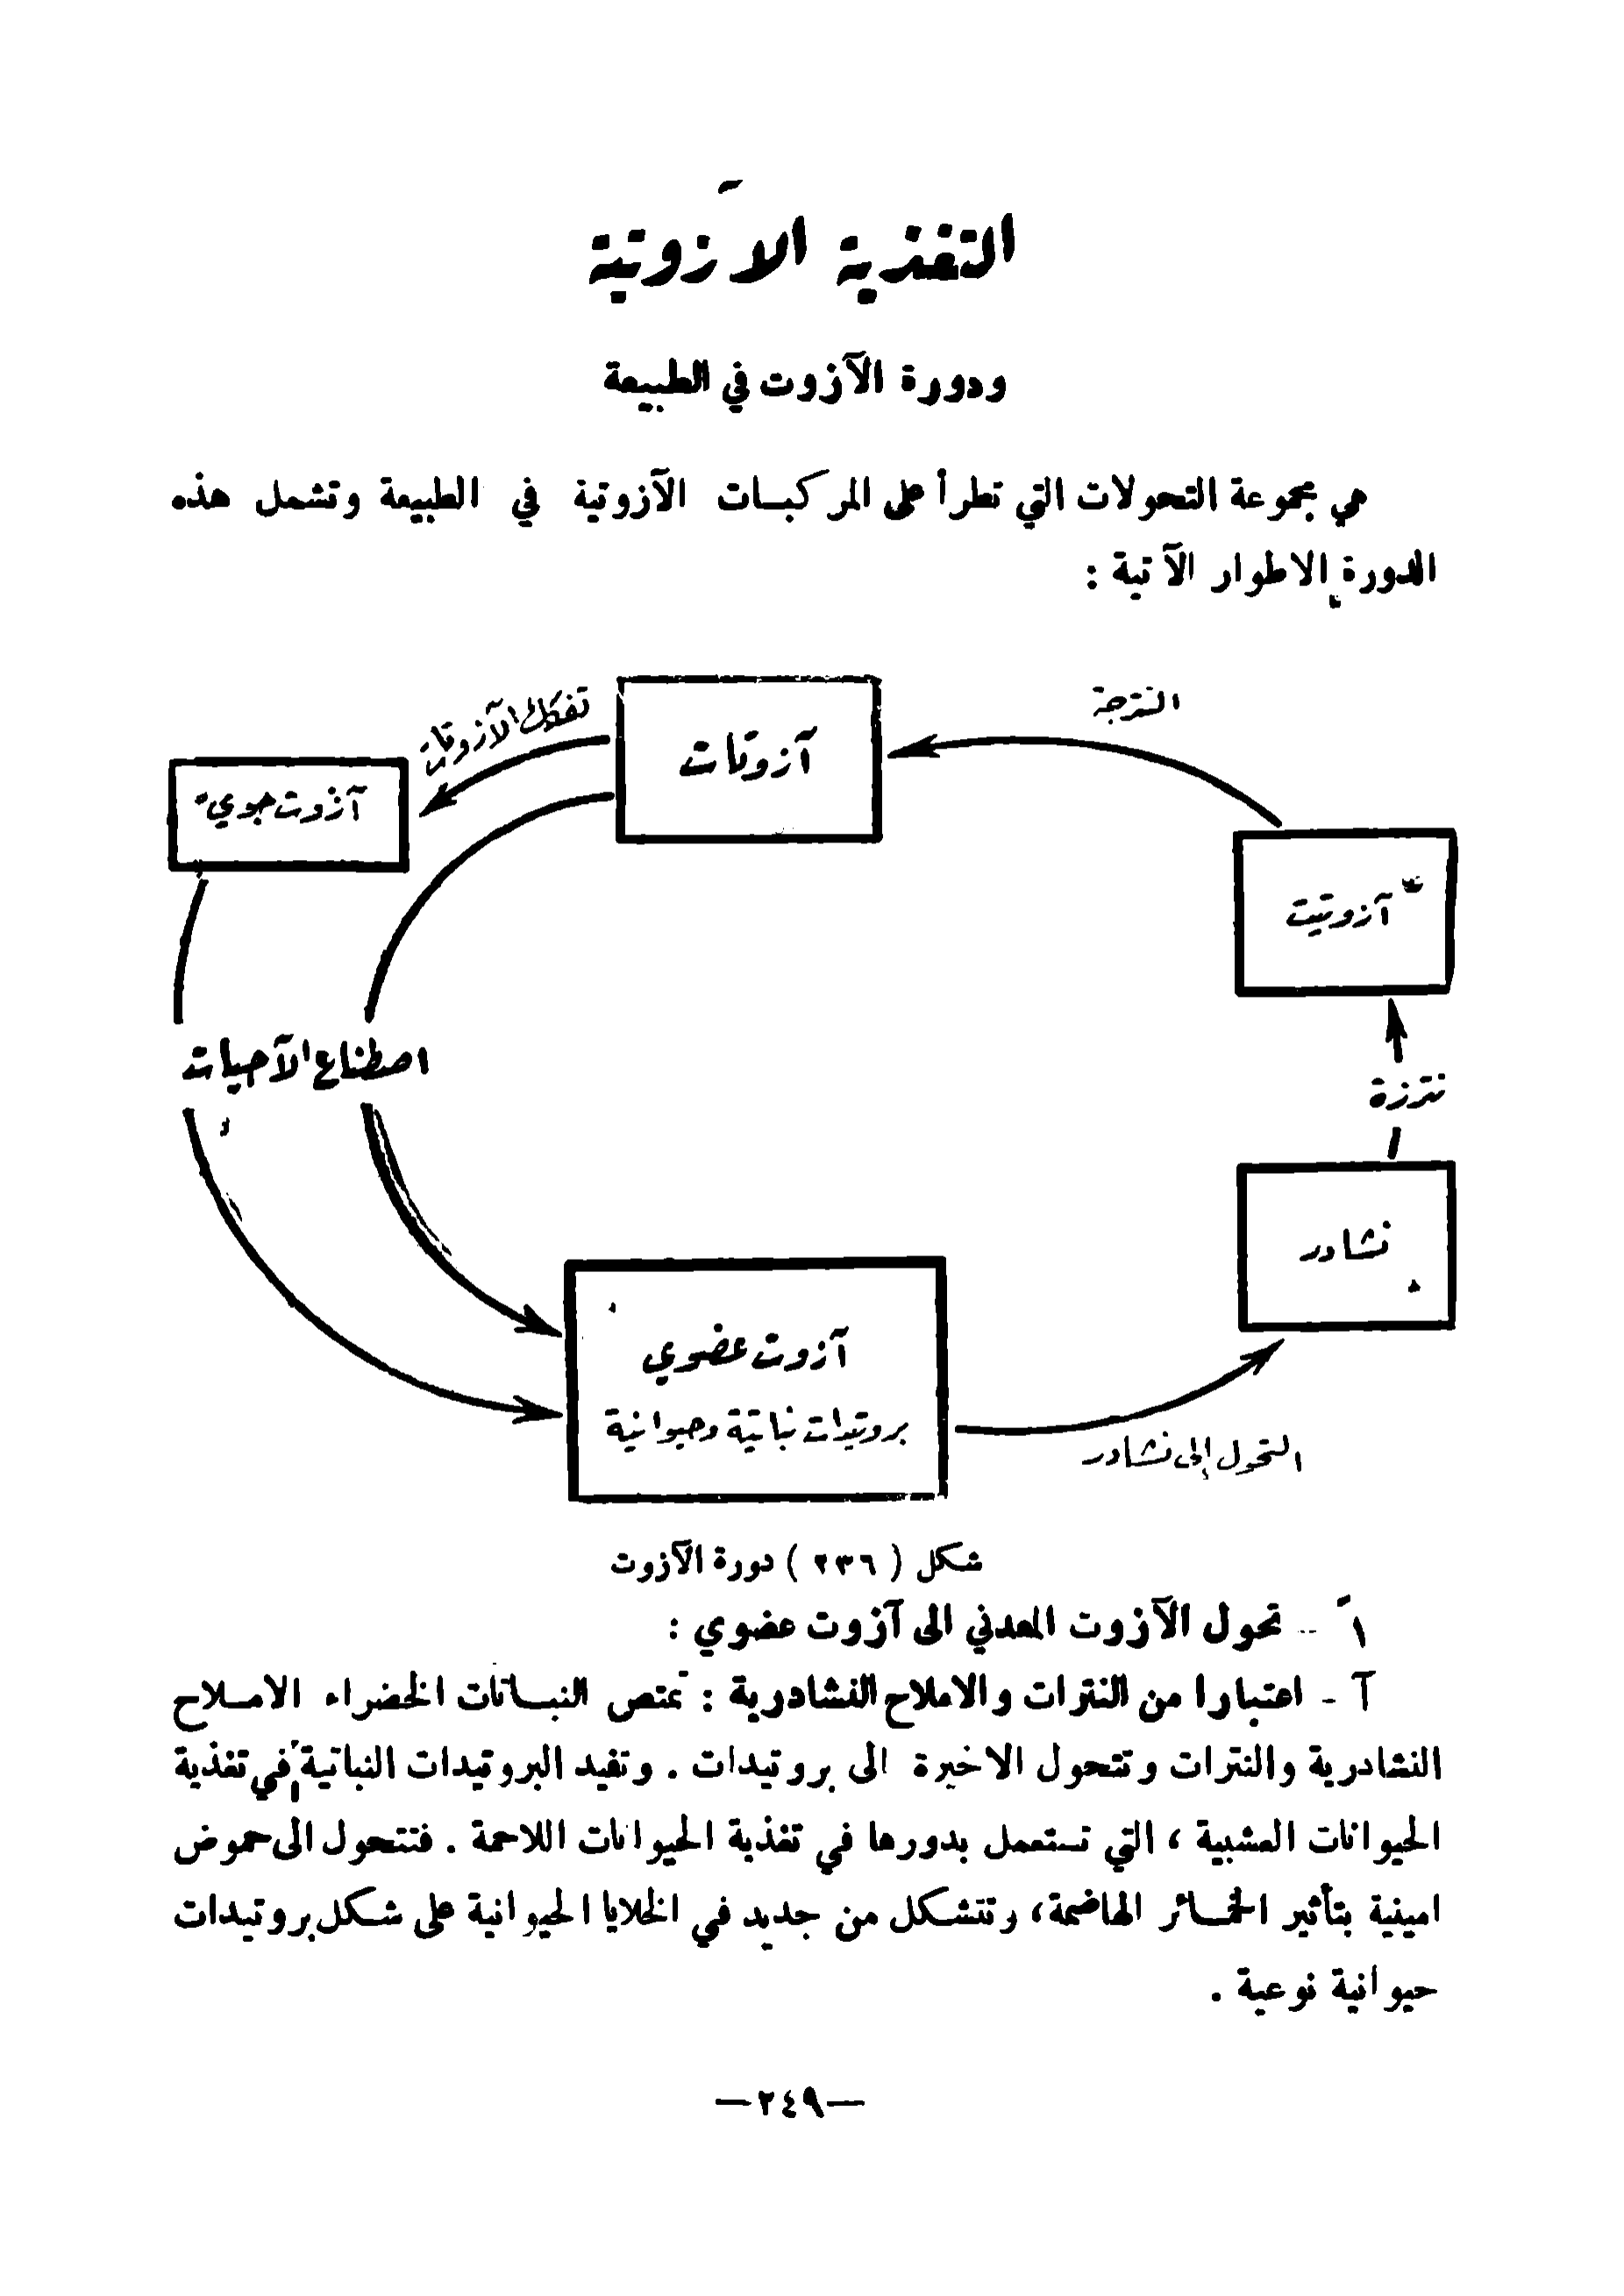 التغذية الآزوتية
ودورة الآزوت في الطبيعة
هي مجموعة التحولات التي تطرأ على المركبات الآزوتية في الطبيعة وتشمل هذه
الدورة الاطوار الآتية :
النترجة
آزوتات
تفكك الآزوتات
آزوت جوي
آزوتيت
اصطناع الآحيات
نترزة
نشادر
آزوت عضوي
بروتيدات نباتية وحيوانية
التحول إلى نشادر
شكل ( ٢٣٦ ) دورة الآزوت
١ً - تحول الآزوت المعدني الى آزوت عضوي :
آ - اعتبارا من النترات والاملاح النشادرية : تمتص النباتات الخضراء الاملاح
النشادرية والنترات وتتحول الاخيرة الى بروتيدات . وتفيد البروتيدات النباتية في تغذية
الحيوانات العشبية ، التي تستعمل بدورها في تغذية الحيوانات اللاحمة . فتتحول الى حموض
امينية بتأثير الخمائر الهاضمة، وتتشكل من جديد في الخلايا الحيوانية على شكل بروتيدات
حيوانية نوعية .
—٢٤٩—